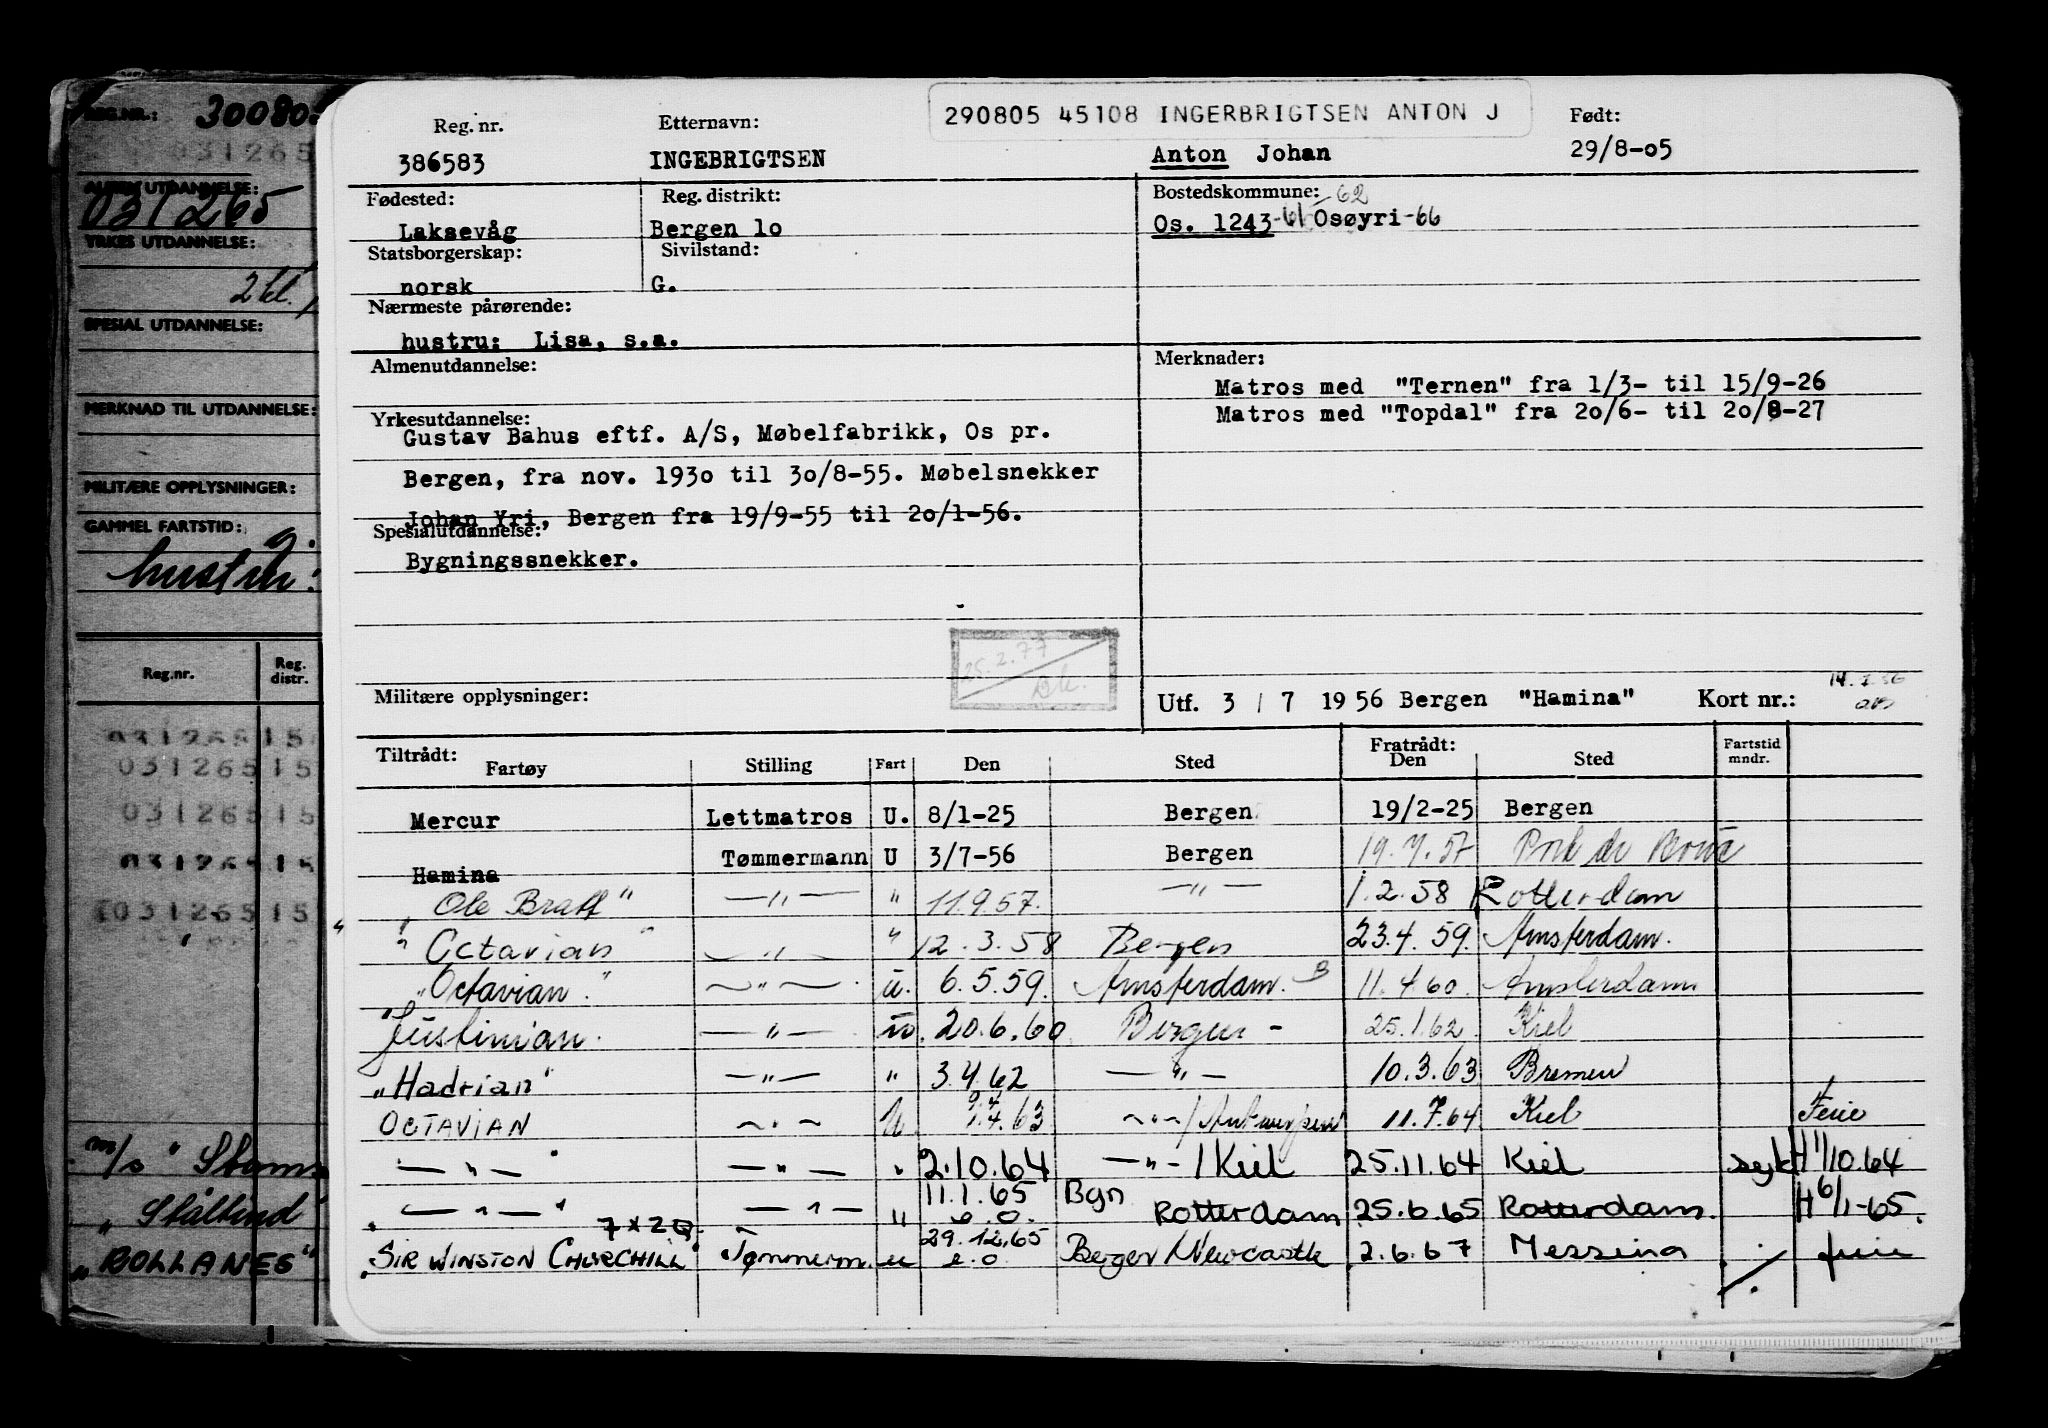 REG.NR.: 300805
031265
ALMEN UTDANNELSE:
031265
YRKES UTDANNELSE:
2 kl.
SPESIAL UTDANNELSE:
MERKNAD TIL UTDANNELSE:
MILITÆRE OPPLYSNINGER:
GAMMEL FARTSTID: g.
hustru:
Reg.nr. Reg. distr.
031265 15
031265 15
031265 15
031265 15
031265 15
m/s "
" Stålbind
"BOLLANES"
290805 45108 INGERBRIGTSEN ANTON J
Reg. nr. Etternavn: Født:
386583 INGEBRIGTSEN Anton Johan 29/8-05
Fødested: Reg. distrikt: Bostedskommune: -62
Laksevåg Bergen 1o Os. 1243-61 Osøyri-66
Statsborgerskap: Sivilstand:
norsk G.
Nærmeste pårørende:
hustru: Lisa, s.a.
Almenutdannelse: Merknader:
Matros med "Ternen" fra 1/3- til 15/9-26
Matros med "Topdal" fra 2o/6- til 2o/8-27
Yrkesutdannelse:
Gustav Bahus eftf. A/S, Møbelfabrikk, Os pr.
Bergen, fra nov. 193o til 3o/8-55. Møbelsnekker
Johan Yri, Bergen fra 19/9-55 til 2o/1-56.
Spesialutdannelse:
Bygningssnekker.
25.2.77
Militære opplysninger: Utf. 3 / 7 1956 Bergen "Hamina" Kort nr.:
Tiltrådt: Fartøy Stilling Fart Den Sted Fratrådt: Den Sted Fartstid mndr.
Mercur Lettmatros U. 8/1-25 Bergen 19/2-25 Bergen
Hamina Tømmermann U 3/7-56 Bergen 19.7.57 Port de Bouc
" " Ole Bratt " — " — " 11.9.57. — " — 1.2.58 Rotterdam
" Octavian " — " — " 12.3.58 Bergen 23.4.59. Amsterdam.
"Octavian." — " — u. 6.5.59. Amsterdam. B 11.4.60. Amsterdam
"Justinian. — " — u. 20.6.60 Bergen - 25.1.62. Kiel
"Hadrian" — " — " 3.4.62 — " — 10.3.63 Bremen
OCTAVIAN — " — u. 9.4 1.4.63 — " — / Antwerpen 11.7.64 Kiel Ferie
— " — — " — " 2.10.64 — " — / Kiel 25.11.64 Kiel syk H 1/10.64
" — " — " — " — " 11.1.65 e.o. Bgn Rotterdam 25.6.65 Rotterdam. H 6/1-65.
7 x 2Q
"SIR WINSTON CHURCHILL" Tømmerm. u 29.12.65 e.o. Bergen / Newcastle 2.6.67 Messina ./. ferie